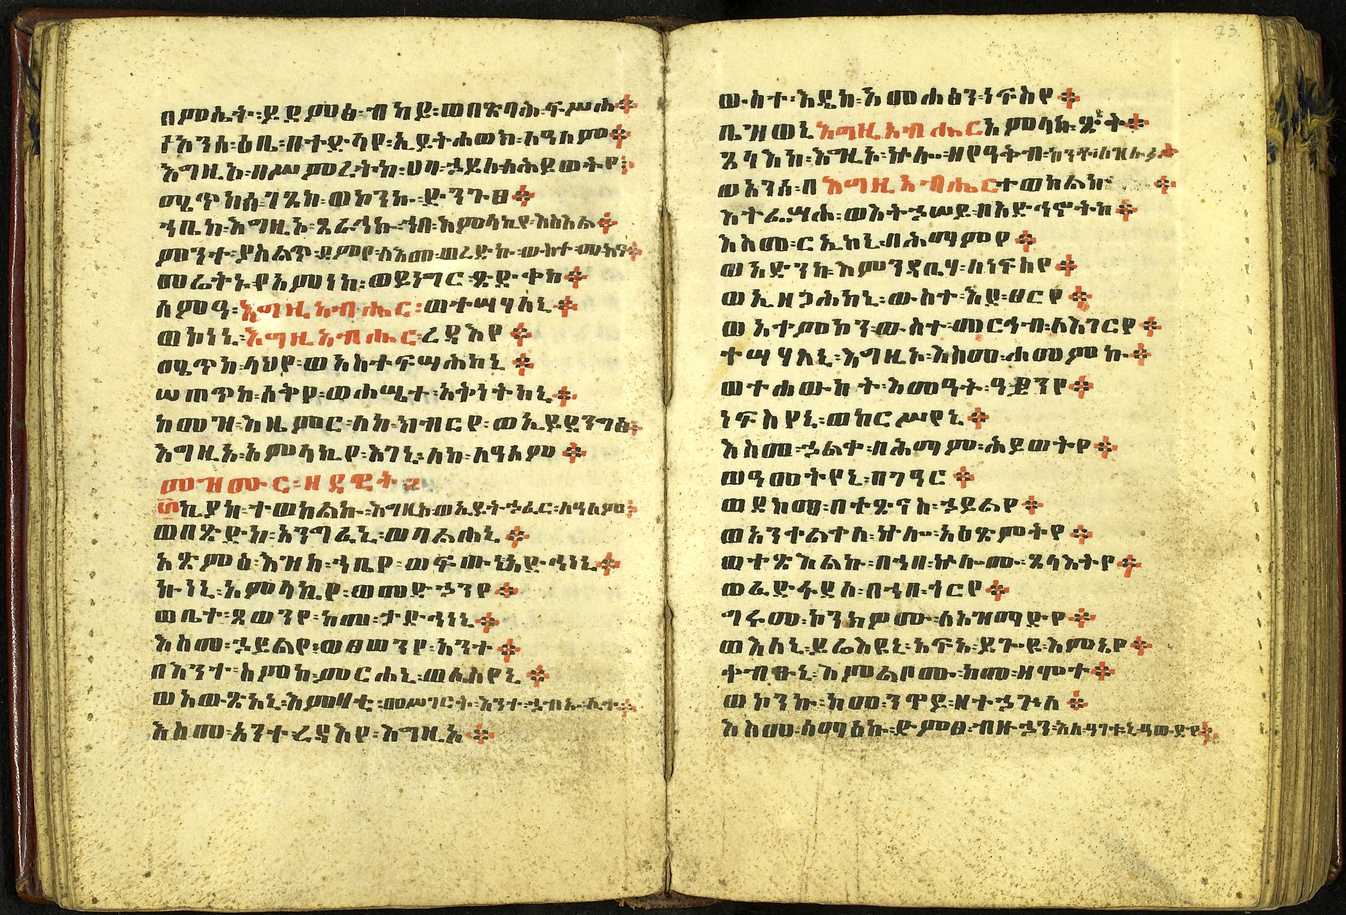 በምሴት፡ይደምፅ፡ብካይ፡ወበጽባሕ፡ፍሥሐ
፤አንሰ፡ዕቤ፡በተድላየ፡ኢይትሐወክ፡ለዓለም
እግዚኦ፡በሥምረትከ፡ሀባ፡ኃይለ፡ለሕይወትየ፡
ሜጥከሰ፡ገጸከ፡ወኮንኩ፡ድንጉፀ
ኀቤከ፡እግዚኦ፡ጸራኅኩ፡ኀበ፡አምላኪየ፡እስእል
ምንተ፡ያሰልጥ፡ደምየ፡ለእመ፡ወረድኩ፡ውስተ፡ሙስና
መሬትኑ፡የአምነከ፡ወይነግር፡ጽድቀከ
ሰምዓ፡እግዚአብሔር፡ወተሣሃለኒ
ወኮነኒ፡እግዚአብሔር፡ረዳእየ
ሜጥከ፡ላህየ፡ወአስተፍሣሕከኒ
ሠጠጥከ፡ሰቅየ፡ወሐሤተ፡አቅነትከኒ
ከመ፡እዜምር፡ለከ፡ክብርየ፡ወኢይደንግፅ
እግዚኦ፡አምላኪየ፡እገኒ፡ለከ፡ለዓለም
መዝሙር፡ዘዳዊት
ኪያከ፡ተወከልኩ፡እግዚኦ፡ወኢይትኃፈር፡ለዓለም
ወበጽድቅከ፡አንግፈኒ፡ወባልሐኒ
አጽምዕ፡እዝነከ፡ኀቤየ፡ወፍጡነ፡አድኅነኒ
ኩነኒ፡አምላኪየ፡ወመድኃንየ
ወቤተ፡ጸወንየ፡ከመ፡ታድኅነኒ
እስመ፡ኃይልየ፡ወፀወንየ፡አንተ
በእንተ፡ስምከ፡ምርሐኒ፡ወሴስየኒ
ወአውጽአኒ፡እምዛቲ፡መሥገርት፡እንተ፡ኃብኡ፡ሊተ
እስመ፡አንተ፡ረዳእየ፡እግዚኦ
ውስተ፡እዴከ፡አመሐፅን፡ነፍስየ
ቤዝወኒ፡እግዚአብሔር፡አምላከ፡ጽድቅ
ጸላእከ፡እግዚኦ፡ኵሎ፡ዘየዓቅብ፡ከንቶ፡ለዝሉፉ
ወአንሰ፡በእግዚአብሔር፡ተወከልኩ
እትፌሣሕ፡ወእትኃሠይ፡በአድኅኖትከ
እስመ፡ርኢከኒ፡በሕማምየ
ወአድኀንካ፡እምንዳቤሃ፡ለነፍስየ
ወኢዘጋሕከኒ፡ውስተ፡እደ፡ፀርየ
ወአቀምኮን፡ውስተ፡መርኅብ፡ለእገርየ
ተሣሃለኒ፡እግዚኦ፡እስመ፡ሐመምኩ
ወተሐውከት፡እመዓት፡ዓይንየ
ነፍስየኒ፡ወከርሥየኒ
እስመ፡ኃልቀ፡በሕማም፡ሕይወትየ
ወዓመትየኒ፡በገዓር
ወደክመ፡በተጽናስ፡ኃይልየ
ወአንቀልቀለ፡ኵሉ፡አዕጽምትየ
ወተጽእልኩ፡በኀበ፡ኵሎሙ፡ጸላእትየ
ወፈድፋደሰ፡በኀበ፡ጎርየ
ግሩመ፡ኮንክዎሙ፡ለአዝማድየ
ወእለኒ፡ይሬእዩኒ፡አፍአ፡ይጐዩ፡እምኔየ
ቀብፁኒ፡እምልቦሙ፡ከመ፡ዘሞተ
ወኮንኩ፡ከመ፡ንዋይ፡ዘተኃጉለ
እስመ፡ሰማዕኩ፡ድምፀ፡ብዙኃን፡እለ፡ዓገቱኒ፡ዓውድየ